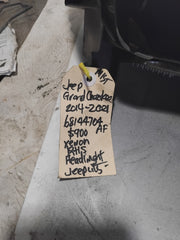 Jeep
Grand Cherokee
2014-2021
68144704 AF
$900
xenon
RHS
Headlight